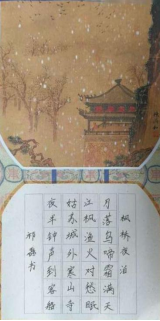 枫桥夜泊
月落乌啼霜满天
江枫渔火对愁眠
姑苏城外寒山寺
夜半钟声到客船